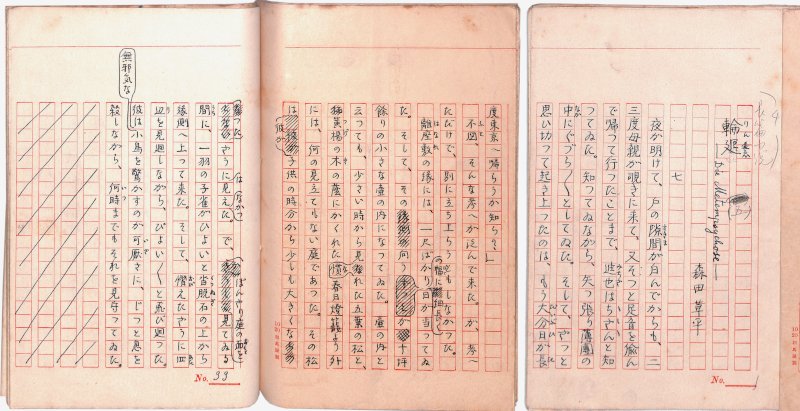 輪廻
りんね
—Die Metempsychose—
森田草平
七
夜が明けて、戸の隙間が白んでからも、二
三度母親が覗きに来て、又そつと足音を偸ん
で帰つて行つたことまで、迪也はちやんと知
つてゐた。知つてゐながら、矢つ張り蒲團の
中にぐづら〱としてゐた。そして、やつと
思ひ切つて起き上つたのは、もう大分日が長
No. 1
度東京へ帰らうか知ら」
不図、そんな考へが泛んで来た。が、考へ
ただけで、別に立ち上らうともしなかつた。
離座敷の縁には、一尺ばかりの幅に細長く日が当つてゐ
た。そして、その向う 十坪
餘りの小さな壺の内になつてゐた。壺の内と
云つても、少さい時から見馴れた五葉の松と、
黄楊の木の蔭にかくれた春日燈籠より外
には、何の見立てもない庭であつた。その松
は彼が子供の時分から少しも大きくな
さうに見えた。で、ぼんやり庭の面を見てゐる
間に、一羽の子雀がひよいと沓脱石の上から
縁側へ上つて来た。そして、慴えたさうに四
辺を見廻しながら、ぴよい〱と飛び廻つた。
無邪気な
彼は小鳥を驚かすのが可厭さに、じつと息を
殺しながら、何時までもそれを見守つてゐた。
No. 33